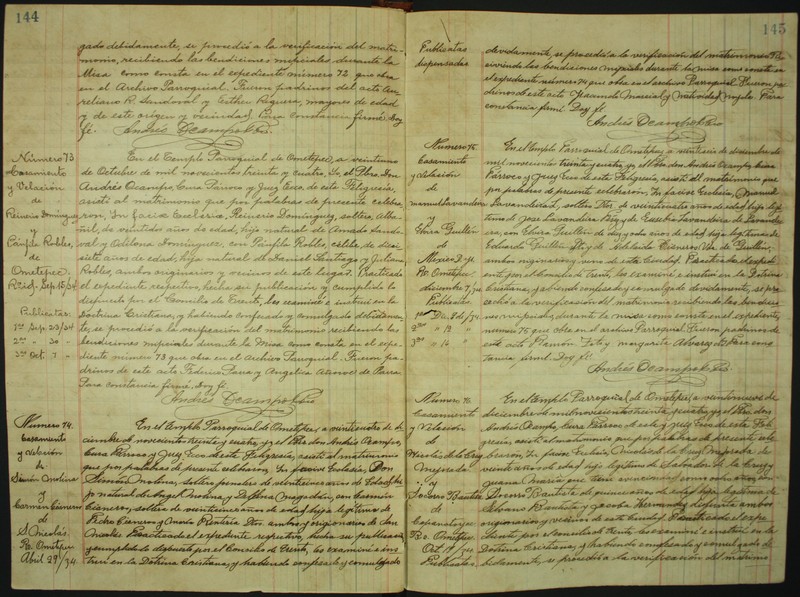 144
gado debidamente, se procedió a la verificación del matri-
monio, recibiendo las bendiciones nupciales durante la
Misa como consta en el expediente número 72 que obra
en el Archivo Parroquial. Fueron padrinos del acto Au-
reliano R. Sandoval y Esther Reguera, mayores de edad
y de este origen y vecindad. Para constancia firmé. Doy
fé. Andrés Ocampo
Número 73
Casamiento
y Velación
de
Reinerio Domínguez
y
Pánfila Robles,
de
Ometepec.
Rcid. Sep. 15/34
Publicatas:
1ª Sep. 23/34
2ª " 30 "
3ª Oct. 7 "
En el Templo Parroquial de Ometepec, a veintiuno
de Octubre de mil novecientos treinta y cuatro, Yo, el Pbro. Don
Andrés Ocampo, Cura Párroco y Juez Ecco. de esta Feligresía,
asistí al matrimonio que por palabras de presente celebra-
ron, In facie Ecclesiæ, Reinerio Domínguez, soltero, Alba-
ñil, de veintidos años de edad, hijo natural de Amado Sando-
val y Adilona Domínguez, con Pánfila Robles, célibe, de dieci-
siete años de edad, hija natural de Daniel Santiago y Juliana
Robles, ambos originarios y vecinos de este lugar. Practicado
el expediente respectivo, hecha su publicación y cumplido lo
dispuesto por el Concilio de Trento, los examiné e instruí en la
Doctrina Cristiana, y habiendo confesado y comulgado debidamen-
te, se procedió a la verificación del matrimonio recibiendo las
bendiciones nupciales durante la Misa como consta en el expe-
diente número 73 que obra en el Archivo Parroquial. Fueron pa-
drinos de este acto Federico Parra y Angelica Añorve de Parra.
Para constancia firmé. Doy fé.
Andrés Ocampo
Número 74.
Casamiento
y velación
de
Simón Molina
y
Carmen Cisneros
de
S. Nicolás.
Re. Ometepec
Abril 29/34.
En el Templo Parroquial de Ometepec, a veinticuatro de di-
ciembre de novecientos treinta y cuatro, yo el Pbro don Andrés Ocampo,
Cura Párroco y Juez Ecco. de esta Feligresía, asistí al matrimonio
que por palabras de presente celebraron, In facies Eclesia, Don
Simón Molina, soltero, de veintinueve años de edad, hi-
jo natural de Angel Molina y Delfina Magadan, con Carmen
Cisneros, soltera de veintinueve años de edad hija legítima de
Pedro Cisneros y ambos originarios de San
Nicolás. Practicado el expediente respectivo, hecha su publicación
y cumplido lo dispuesto por el Concilio de Trento, los examiné e ins-
truí en la Dotrina Cristiana, y habiendo confesado y comulgado
145
Publicatas
dispensadas
devidamente, se procedió a la verificación del matrimonio re-
civiendo las bendiciones nupciales durante la misa como consta en
el expediente número 74 que obra en el archivo Parroquial. Fueron pa-
drinos de este acto Facundo Marcial y Natividad Para
constancia firmé. Doy fé.
Andrés Ocampo
Número 75.
Casamiento
y velación
de
Manuel Lavandera
y
Elvira Guillén
de
México D. y
Re. Ometepec
diciembre 7/34
Publicatas
1ª Dic. 8 de /34
2ª " 12 "
3ª " 16 "
En el Templo Parroquial de Ometepec a veintiseis de diciembre de
mil novecientos treinta y cuatro, yo el Pbro don Andrés Ocampo, Cura
Párroco y Juez Ecco. de esta Feligresía, asistí al matrimonio que
por palabras de presente celebraron, In facies Eclesia, Manuel
Lavandera, soltero de veinticuatro años de edad hijo legí-
timo de José Lavandera y de Eusebia Lavandera de Lavande-
ra, con Elvira Guillén de años de edad hija legítima de
Eduardo Guillén y de Adelaida Cisneros Vda. de Guillén,
ambos originarios y vecinos de esta Ciudad. Practicado el expedi-
ente por el Concilio de Trento, los examiné e instruí en la Dotrina
Cristiana, y habiendo confesado y comulgado devidamente, se pro-
cedió a la verificación del matrimonio recibiendo las bendicio-
nes nupciales, durante la misa como consta en el expediente,
número 75 que obra en el archivo Parroquial. Fueron padrinos de
este acto Ramón y Margarita Alvarez de Para cons-
tancia firmé. Doy fé.
Andrés Ocampo
Número 76.
Casamiento
y Velación
de
Nicolás de la Cruz
Mejorada
y
Socorro Bautista
de
Re. Ometepec
Oct. 17/34
Publicatas
En el Templo Parroquial de Ometepec, a veintinueve de
diciembre de mil novecientos treinta y cuatro, yo el Pbro. don
Andrés Ocampo, Cura Párroco de esta y Juez Ecco. de esta Feli-
gresía, asistí al matrimonio que por palabras de presente cele-
braron, In facies Eclesia, Nicolás de la Cruz Mejorada de
veinte años de edad hijo legítimo de Salvador de la Cruz y
Juana María que tiene
Socorro Bautista de quince años de edad hija legítima de
Silvano Bautista y Jacoba Hernández difunta ambos
originarios y vecinos de esta Ciudad. Practicado el expe-
diente por el Concilio de Trento, los examiné e instruí en la
Dotrina Cristiana, y habiendo confesado y comulgado de-
bidamente, se procedió a la verificación del matrimo-